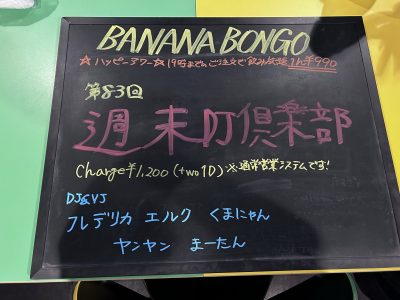 BANANA BONGO
☆ハッピーアワー☆ 19時までのご注文で飲み放題 1h ¥990
第83回
週末DJ倶楽部
Charge ¥1,200 (+two 1D) ※通常営業システムです!
DJ&VJ
フレデリカ エルク くまにゃん
ヤンヤン まーたん